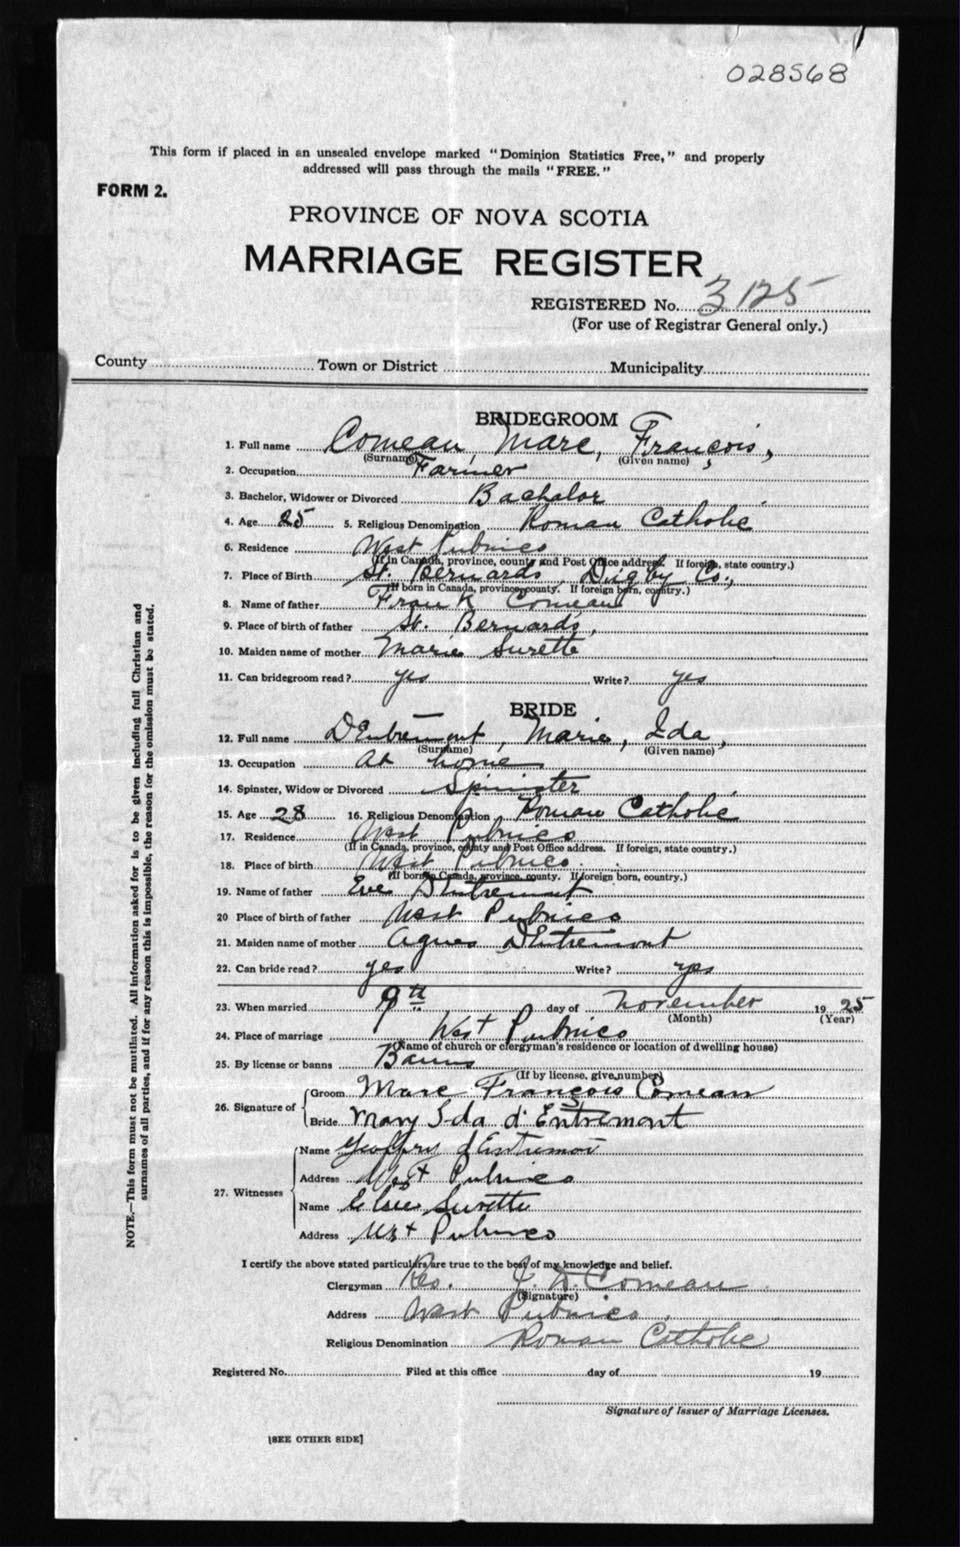 028568
This form if placed in an unsealed envelope marked "Dominion Statistics Free," and properly
addressed will pass through the mails "FREE."
FORM 2.
PROVINCE OF NOVA SCOTIA
MARRIAGE REGISTER
REGISTERED No. 3125
(For use of Registrar General only.)
County Town or District Municipality
BRIDEGROOM
1. Full name Comeau, Marc, François,
(Surname) (Given name)
2. Occupation Farmer
3. Bachelor, Widower or Divorced Bachalor
4. Age 25 5. Religious Denomination Roman Catholic
6. Residence West Pubnico
(If in Canada, province, county and Post Office address. If foreign, state country.)
7. Place of Birth St. Bernards, Digby Co.,
(If born in Canada, province, county. If foreign born, country.)
8. Name of father Frank Comeau
9. Place of birth of father St. Bernards,
10. Maiden name of mother Marie Surette
11. Can bridegroom read? yes Write? yes
BRIDE
12. Full name DEntremont, Marie, Ida,
(Surname) (Given name)
13. Occupation At home
14. Spinster, Widow or Divorced Spinister
15. Age 28 16. Religious Denomination Roman Catholic
17. Residence West Pubnico
(If in Canada, province, county and Post Office address. If foreign, state country.)
18. Place of birth West Pubnico
(If born in Canada, province, county. If foreign born, country.)
19. Name of father DEntremont
20 Place of birth of father West Pubnico
21. Maiden name of mother Agnes DEntremont
22. Can bride read? yes Write? yes
23. When married 9th day of November 19 25
(Month) (Year)
24. Place of marriage West Pubnico
(Name of church or clergyman's residence or location of dwelling house)
25. By license or banns Banns
(If by license, give number)
26. Signature of Groom Marc François Comeau
Bride Mary Ida d'Entremont
27. Witnesses Name d'Entremont
Address West Pubnico
Name Elsie Surette
Address West Pubnico
I certify the above stated particulars are true to the best of my knowledge and belief.
Clergyman Rev. J. D. Comeau
(Signature)
Address West Pubnico
Religious Denomination Roman Catholic
Registered No. Filed at this office day of 19
Signature of Issuer of Marriage Licenses.
[SEE OTHER SIDE]
NOTE.—This form must not be mutilated. All information asked for is to be given including full Christian and
surnames of all parties, and if for any reason this is impossible, the reason for the omission must be stated.